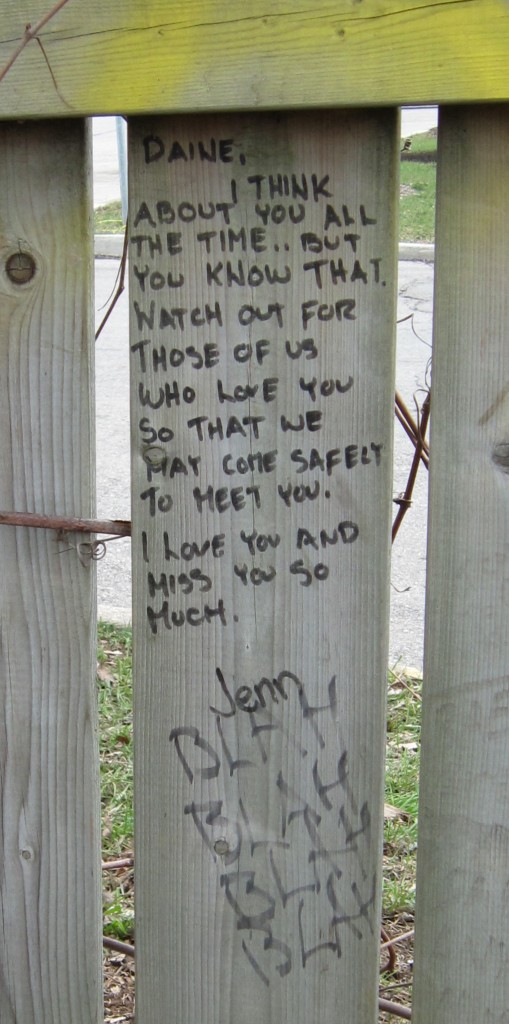 DAINE,
I THINK
ABOUT YOU ALL
THE TIME.. BUT
YOU KNOW THAT.
WATCH OUT FOR
THOSE OF US
WHO LOVE YOU
SO THAT WE
MAY COME SAFELY
TO MEET YOU.
I LOVE YOU AND
MISS YOU SO
MUCH.
Jenn
BLAH
BLAH
BLAH
BLAH